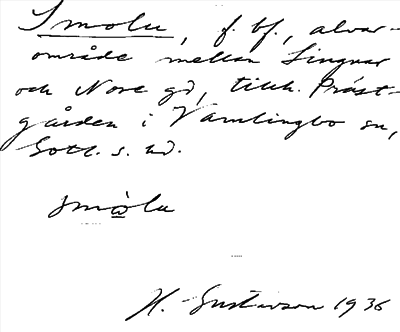 Smolu, f. bf., alvar-
område mellan Lingvar
och Nore gd, tillh. Präst-
gården i Vamlingbo sn,
Gotl. s. hd.
smòlu
H. Gustavson 1936